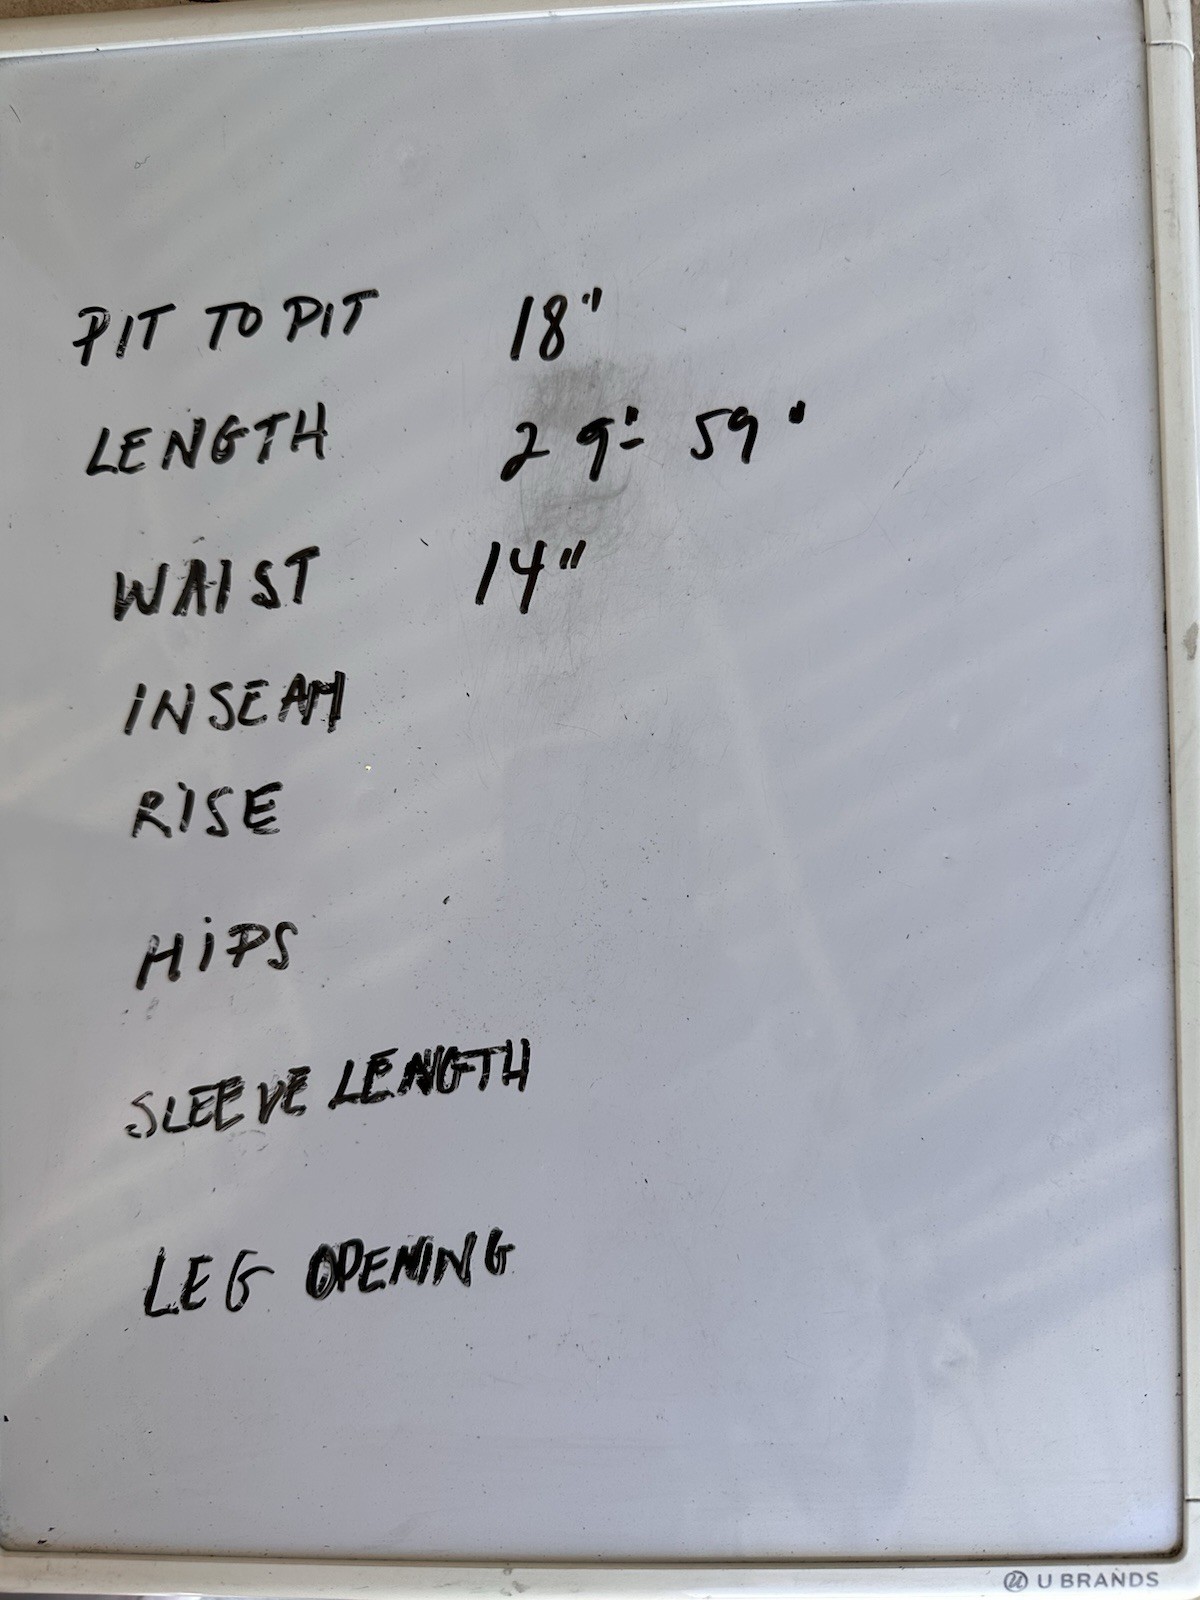 PIT TO PIT 18"
LENGTH 29"- 59"
WAIST 14"
INSEAM
RISE
HIPS
SLEEVE LENGTH
LEG OPENING
U BRANDS